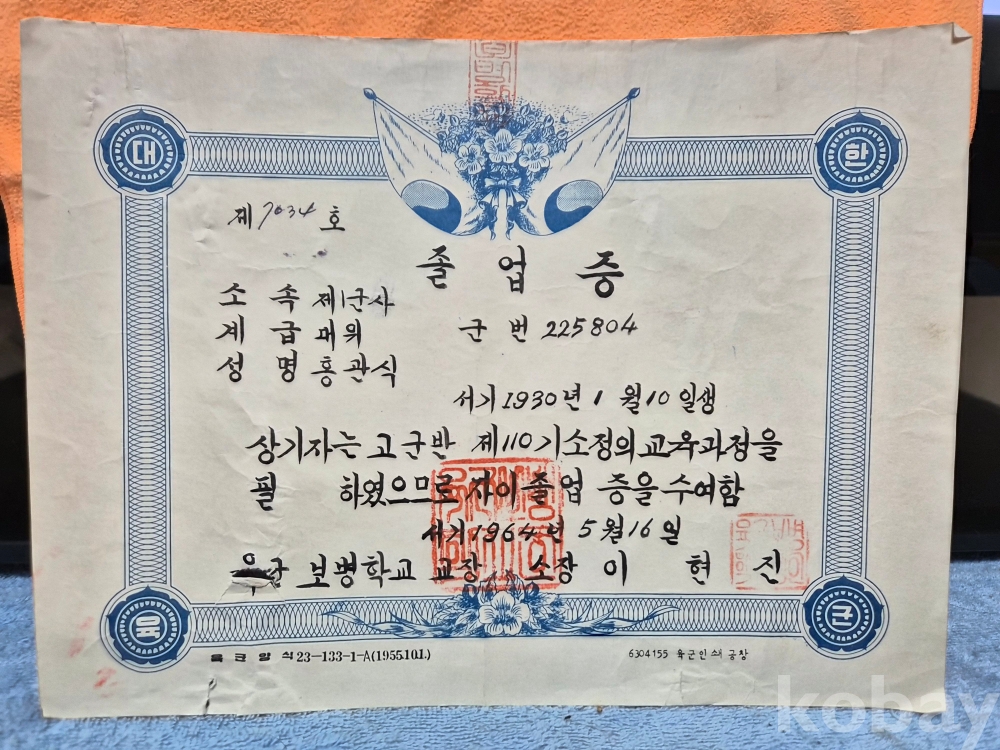 대 한
제 7034 호
졸 업 증
소 속 제1군사
계 급 대위 군 번 225804
성 명 홍관식
서기 1930년 1 월 10 일생
상기자는 고군반 제110기소정의교육과정을
필 하였으므로 자이졸업 증을수여함
서기 1964년 5 월 16 일
육군 보병학교 교장 소장 이 현 진
육 군
육 군 양 식 23-133-1-A(1955.10.1.)
6304155 육군인쇄공창
kobay